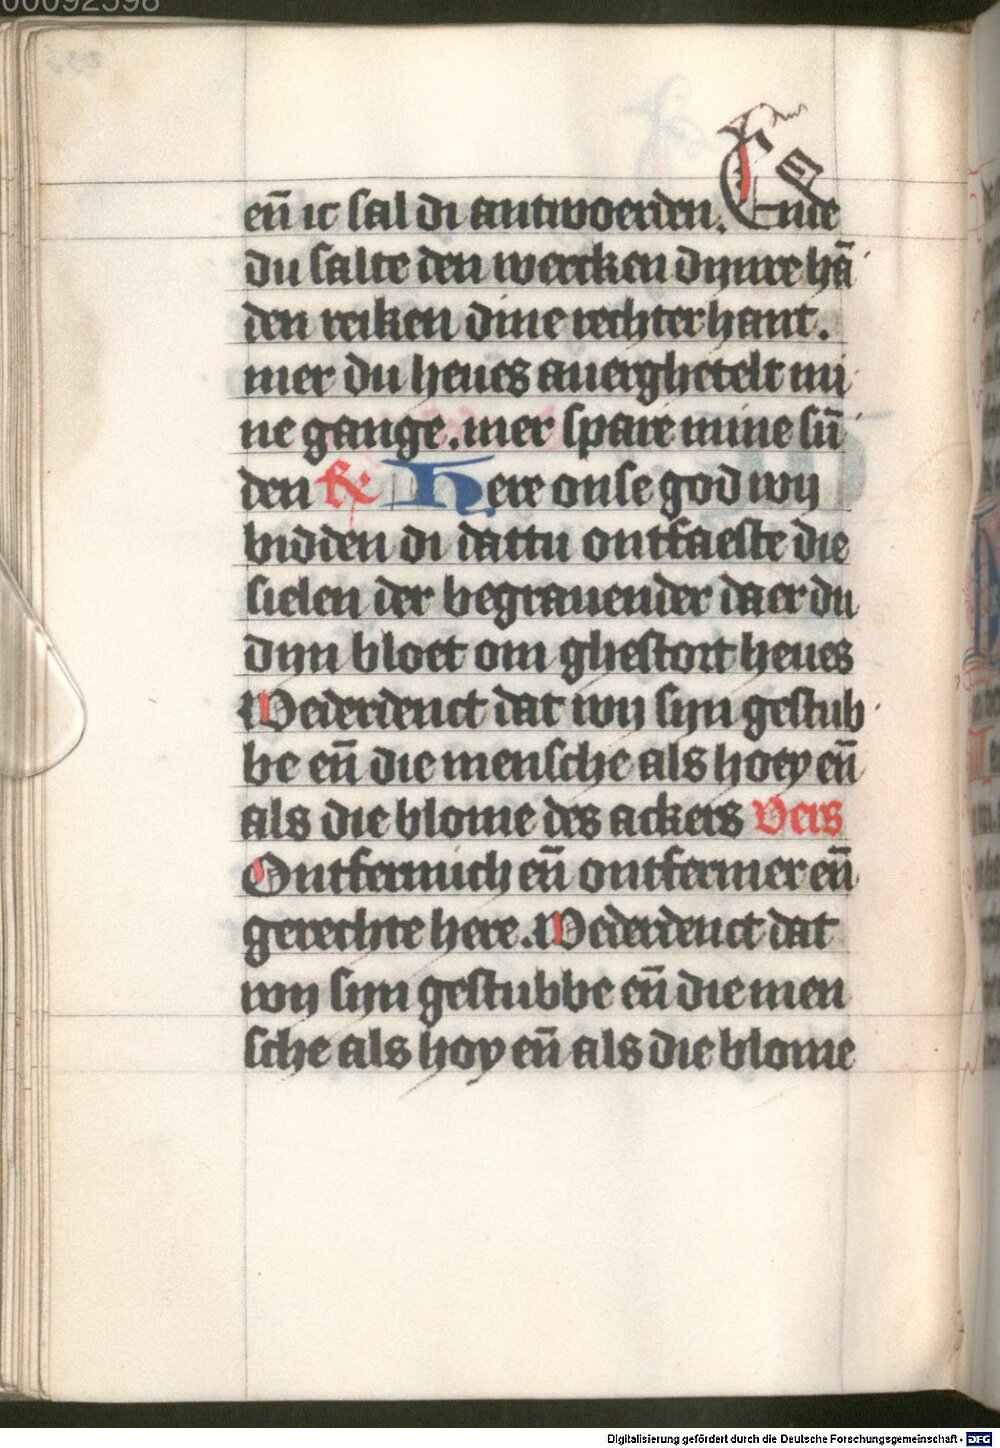 00092598
en̄ ic sal di antwoerden. Ende
du salte den wercken dynre hā
den reiken dine rechterhant.
mer du heues auerghetelt mi
ne gange. mer spare mine sū
den ℟ Here onse god wy
bidden di dattu ontfaeste die
sielen der begrauender daer du
dyn bloet om ghestort heues
Wederdenct dat wy syn gestub
be en̄ die mensche als hoey en̄
als die blome des ackers Vers
Ontfermich en̄ ontfermer en̄
gerechte here. Wederdenct dat
wy syn gestubbe en̄ die men
sche als hoy en̄ als die blome
Digitalisierung gefördert durch die Deutsche Forschungsgemeinschaft - DFG